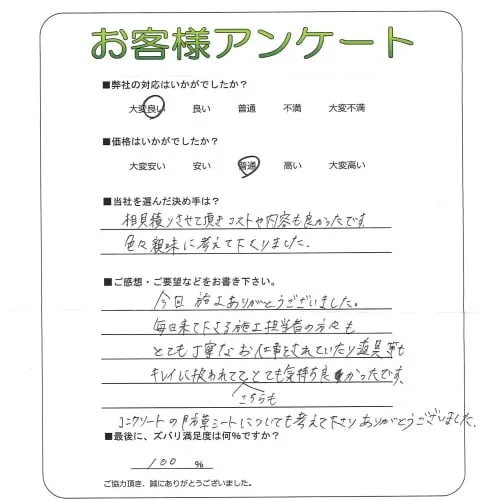 お客様アンケート
■弊社の対応はいかがでしたか？
大変良い 良い 普通 不満 大変不満
■価格はいかがでしたか？
大変安い 安い 普通 高い 大変高い
■当社を選んだ決め手は？
相見積りさせて頂きコストや内容も良かったです
色々親味に考えて下さりました。
■ご感想・ご要望などをお書き下さい。
今回 施工ありがとうございました。
毎日来て下さる施工担当者の方々も
とても丁寧なお仕事をされていたり道具等も
キレイに扱われてて とても気持ち良かったです。
こちらも
コンクリートの防草シートについても考えて下さりありがとうございました。
■最後に、ズバリ満足度は何%ですか？
100 %
ご協力頂き、誠にありがとうございました。